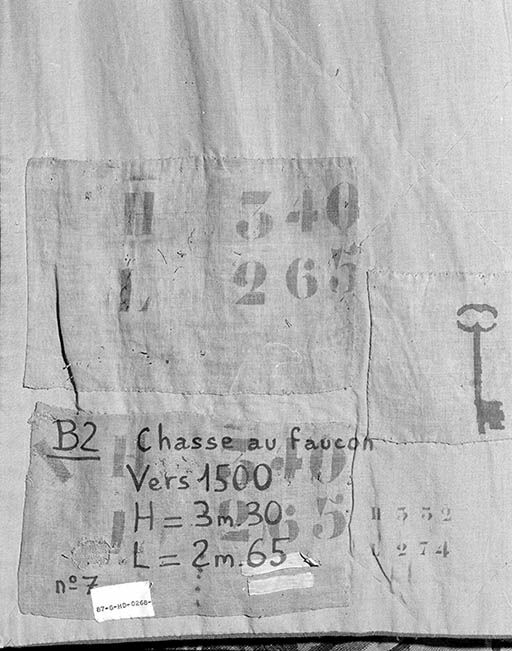 H 340
L 265
B2 Chasse au faucon
Vers 1500
H = 3m.30
L = 2m.65
nº 7
H 340
265
H 332
L 274
87-G-HD-0268-